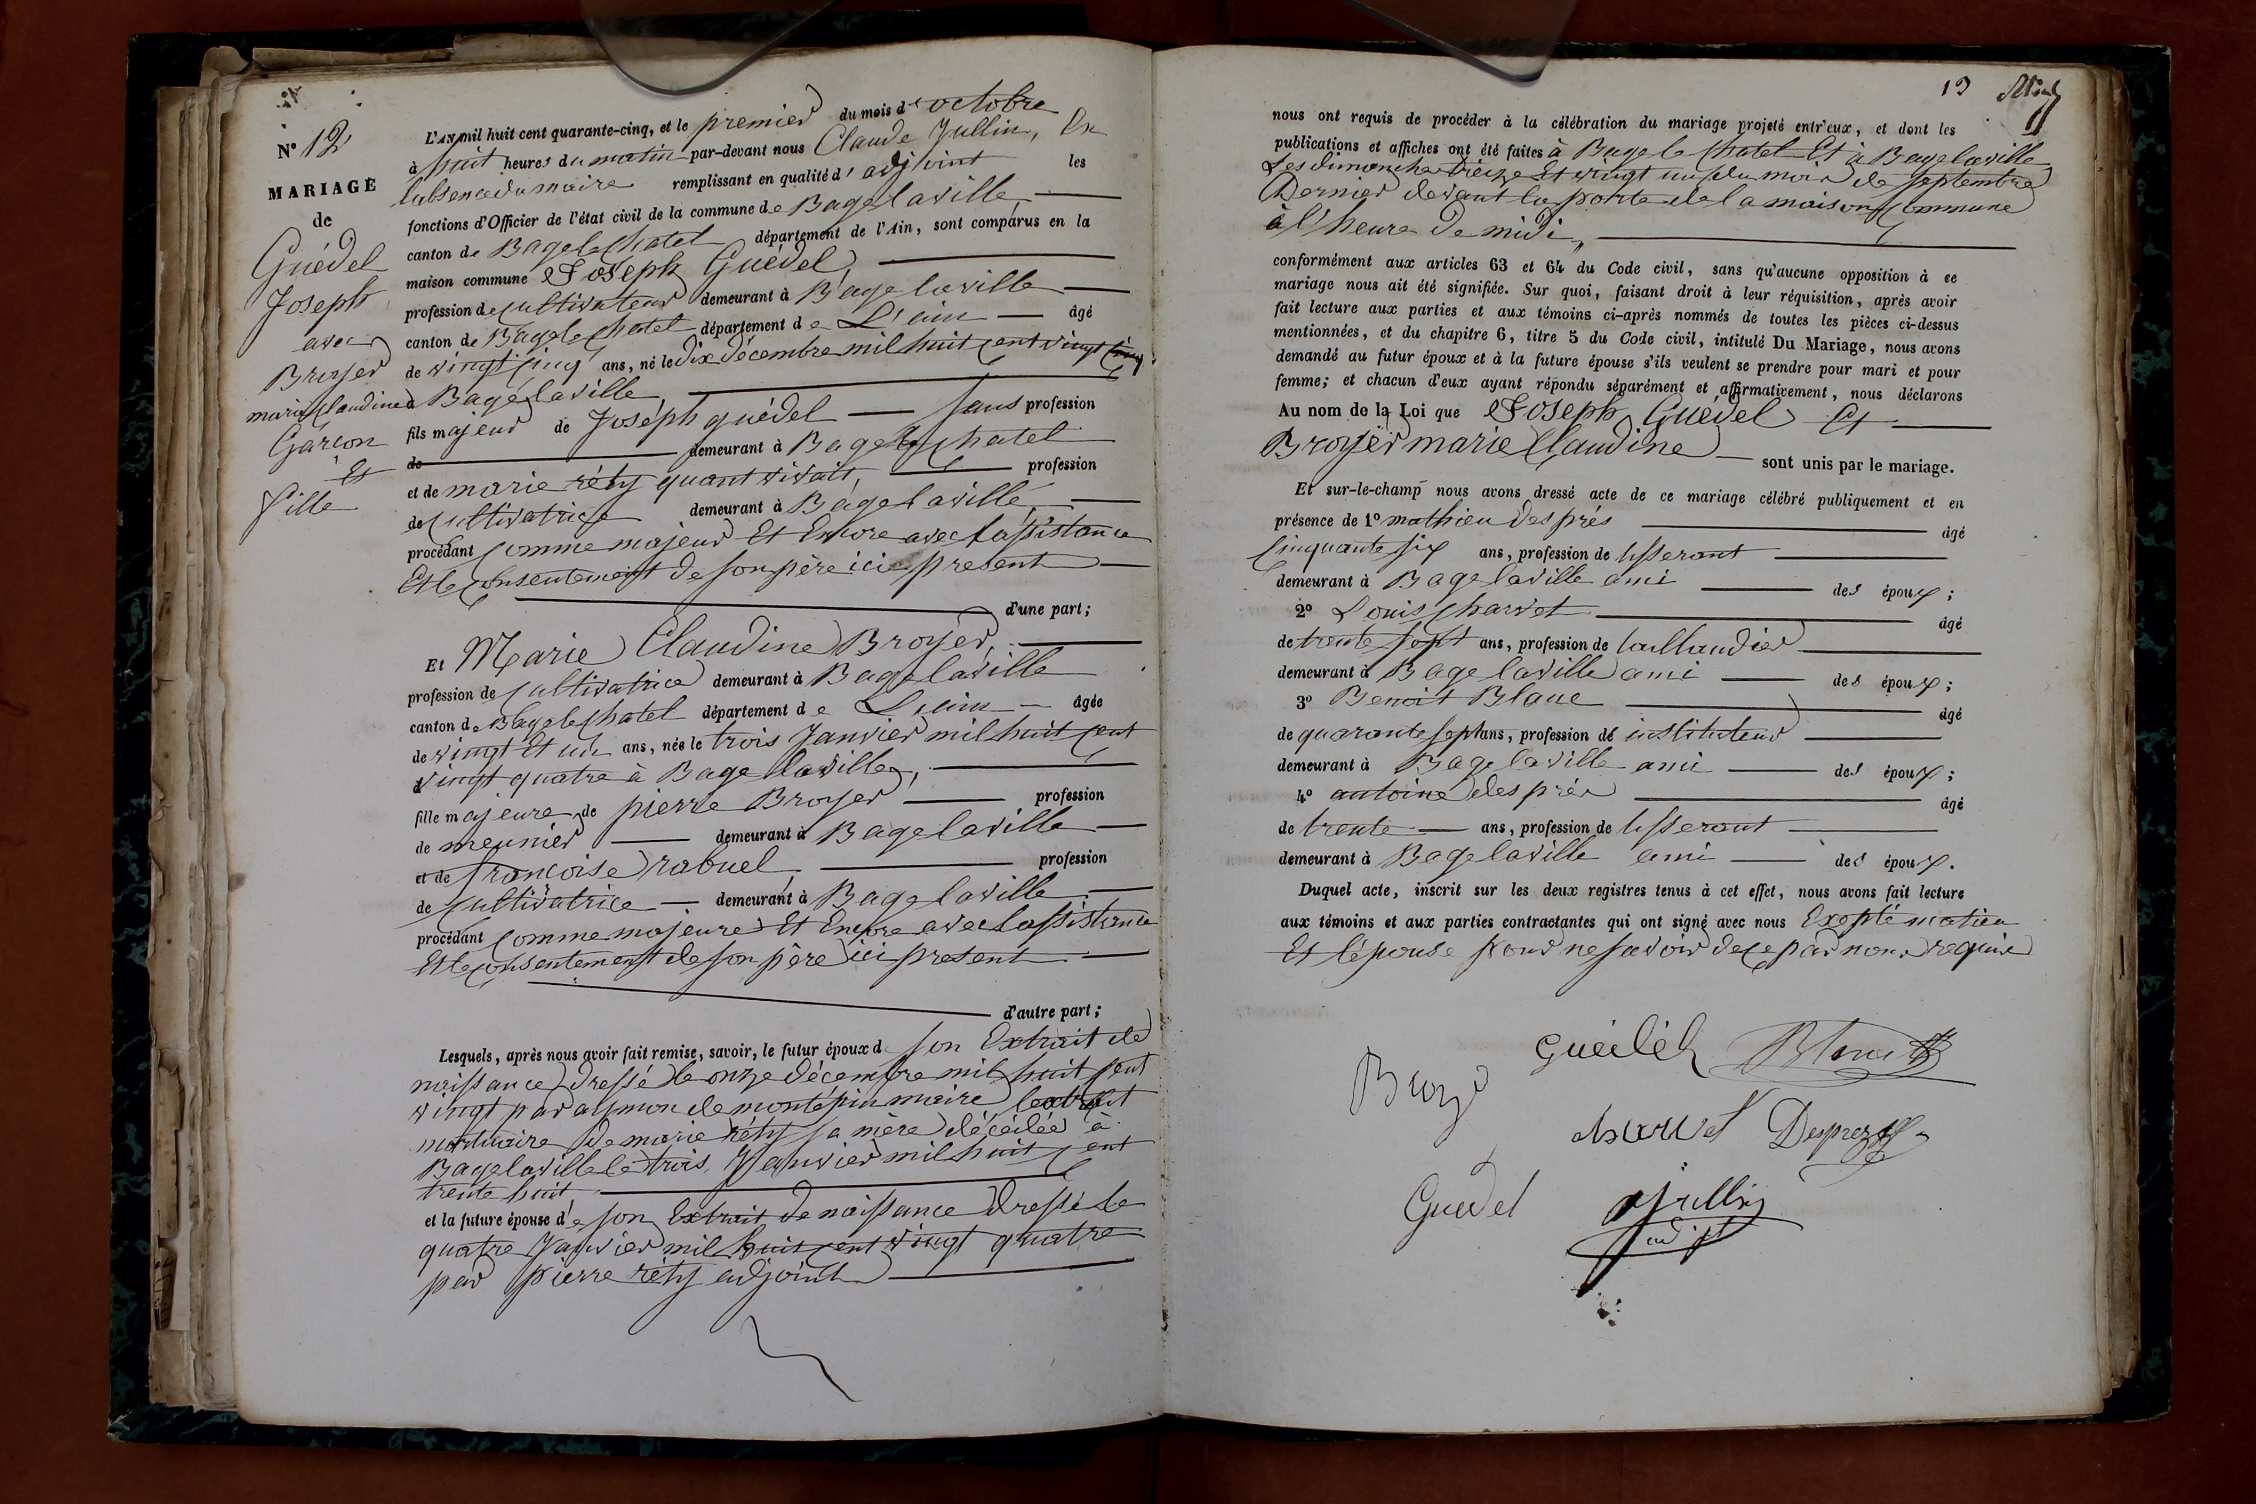 N° 12
MARIAGE
de
Guédel
Joseph
avec
Broyer
marie Claudine
Garcon
Et
fille
L'AN mil huit cent quarante-cinq, et le premier du mois d'octobre
à huit heures du matin par-devant nous Claude Jullin, En
labsence du maire remplissant en qualité d'adjoint les
fonctions d'Officier de l'état civil de la commune de Bagelaville
canton de Bagele Chatel département de l'Ain, sont comparus en la
maison commune Joseph Guédel,
profession de cultivateur demeurant à Bagelaville
canton de Bagele Chatel département de L'ain âgé
de vingt cinq ans, né le dix décembre mil huit cent vingt
à Bagélaville,
fils majeur de Joséph guédel sans profession
de demeurant à Bagele Chatel
et de marie réty quant vivait, profession
de Cultivatrice demeurant à Bagelaville,
procédant comme majeur Et Encore avec lassistance
Et le Consentement de son père ici present
d'une part;
Et Marie Claudine Broyer,
profession de Cultivatrice demeurant à Bagelaville
canton de Bagele Chatel département de L'ain âgée
de vingt Et un ans, née le trois Janvier mil huit cent
vingt quatre à Bagelaville,
fille majeure de pierre Broyer profession
de meunier demeurant à Bagelaville
et de francoise rabuel, profession
de Cultivatrice demeurant à Bagelaville
procédant comme majeure Et Encore avec lassistance
Et le consentement de son père ici present
d'autre part;
Lesquels, après nous avoir fait remise, savoir, le futur époux d son Extrait de
naissance dressé le onze décembre mil huit cent
vingt par aymon de montepin maire lextrait
mortuaire de marie réty sa mère décédée à
Bagelaville le trois Janvier mil huit cent
trente huit,
et la future épouse de son Extrait de naissance dressé le
quatre Janvier mil huit cent vingt quatre
par pierre réty adjoint
12
nous ont requis de procéder à la célébration du mariage projeté entr'eux, et dont les
publications et affiches ont été faites à Bage le Chatel Et à Bagelaville
Les dimanche treize Et vingt un du mois de septembre
Dernier devant la porte de la maison Commune
à l'heure de midi,
conformément aux articles 63 et 64 du Code civil, sans qu'aucune opposition à ce
mariage nous ait été signifiée. Sur quoi, faisant droit à leur réquisition, après avoir
fait lecture aux parties et aux témoins ci-après nommés de toutes les pièces ci-dessus
mentionnées, et du chapitre 6, titre 5 du Code civil, intitulé Du Mariage, nous avons
demandé au futur époux et à la future épouse s'ils veulent se prendre pour mari et pour
femme; et chacun d'eux ayant répondu séparément et affirmativement, nous déclarons
Au nom de la Loi que Joseph Guédel Et
Broyer marie Claudine sont unis par le mariage.
Et sur-le-champ nous avons dressé acte de ce mariage célébré publiquement et en
présence de 1° mathieu Després âgé
Cinquante six ans, profession de tisserant
demeurant à Bagelaville ami des époux;
2° Louis Charvet âgé
de trente sept ans, profession de taillandier
demeurant à Bagelaville ami des époux;
3° Benoit Blanc âgé
de quarante sept ans, profession de instituteur
demeurant à Bagelaville ami des époux;
4° antoine després âgé
de trente ans, profession de tisserant
demeurant à Bagelaville ami des époux.
Duquel acte, inscrit sur les deux registres tenus à cet effet, nous avons fait lecture
aux témoins et aux parties contractantes qui ont signé avec nous Excpté matieu
Et lépouse pour ne savoir de ce par nous requis
Guédél Blanc
Broye
charvet Desprez
Guedel Jullin
adjt